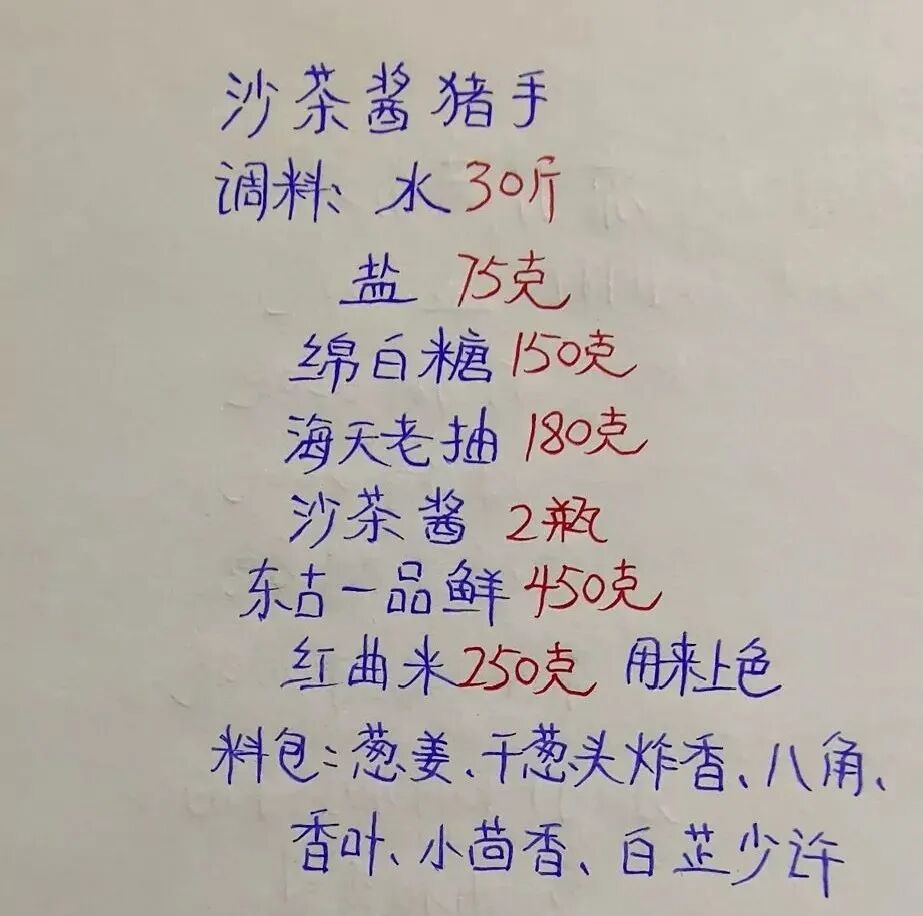 沙茶酱猪手
调料: 水 30斤
盐 75克
绵白糖 150克
海天老抽 180克
沙茶酱 2瓶
东古一品鲜 450克
红曲米 250克 用来上色
料包: 葱姜、干葱头炸香、八角、
香叶、小茴香、白芷少许